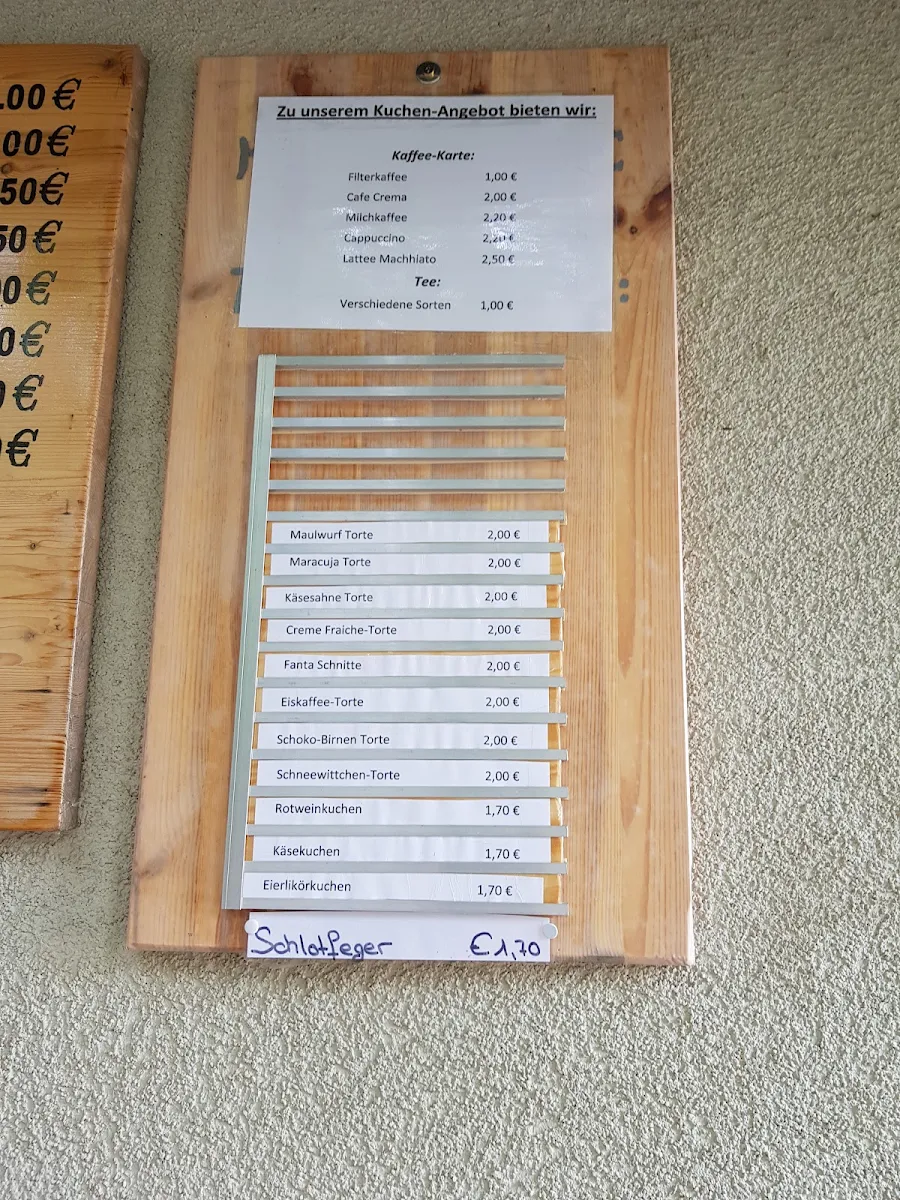 .00€
00€
50€
50€
00€
0€
€
€
Zu unserem Kuchen-Angebot bieten wir:
Kaffee-Karte:
Filterkaffee 1,00 €
Cafe Crema 2,00 €
Milchkaffee 2,20 €
Cappuccino 2,20 €
Lattee Machhiato 2,50 €
Tee:
Verschiedene Sorten 1,00 €
Maulwurf Torte 2,00 €
Maracuja Torte 2,00 €
Käsesahne Torte 2,00 €
Creme Fraiche-Torte 2,00 €
Fanta Schnitte 2,00 €
Eiskaffee-Torte 2,00 €
Schoko-Birnen Torte 2,00 €
Schneewittchen-Torte 2,00 €
Rotweinkuchen 1,70 €
Käsekuchen 1,70 €
Eierlikörkuchen 1,70 €
Schlotfeger €1,70